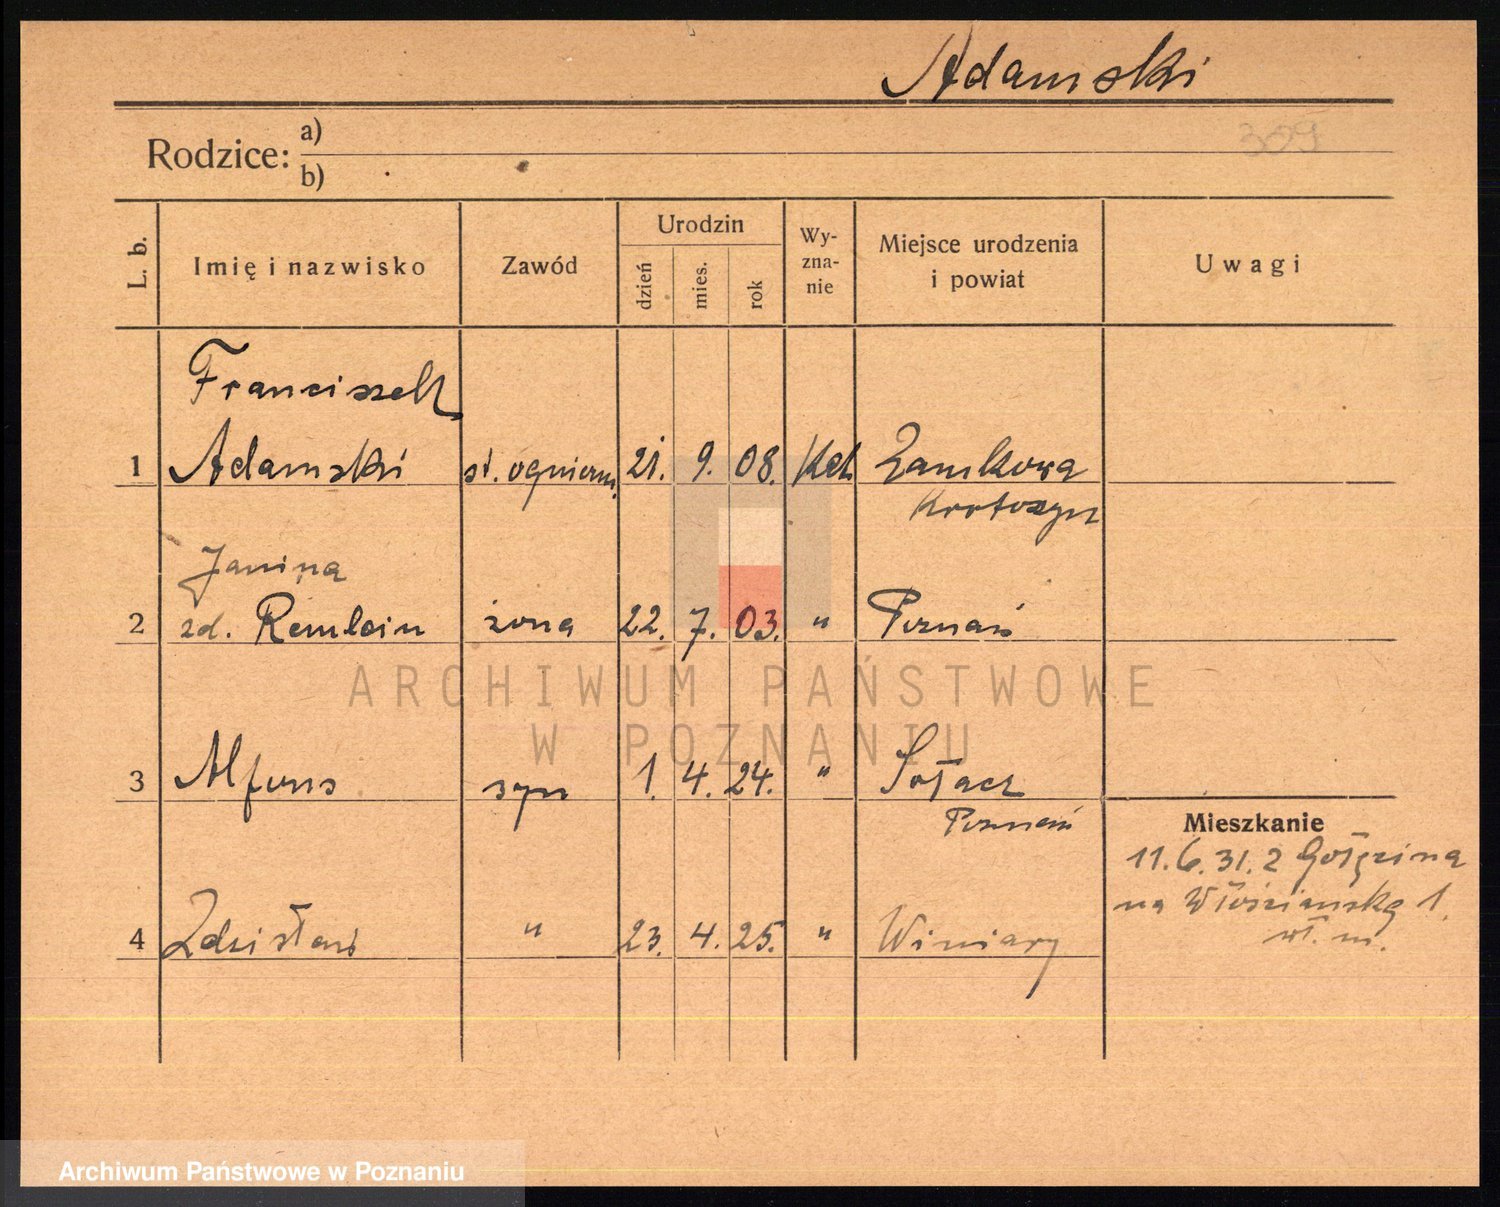 Adamski
309
Rodzice: a)
b)
L. b.
Imię i nazwisko
Zawód
Urodzin
dzień
mies.
rok
Wy-
zna-
nie
Miejsce urodzenia
i powiat
Uwagi
Franciszek
1 Adamski st. ogniom. 21. 9. 08. Kat Zamkowa
Krotoszyn
Janina
2 zd. Remlein żona 22. 7. 03. " Poznań
3 Alfons syn 1. 4. 24. " Sołacz
Poznań
Mieszkanie
11.6.31. z Gołęcina
na Włościańską 1.
4 Zdzisław " 23. 4. 25. " Winiary
wł. m.
ARCHIWUM PAŃSTWOWE
W POZNANIU
Archiwum Państwowe w Poznaniu